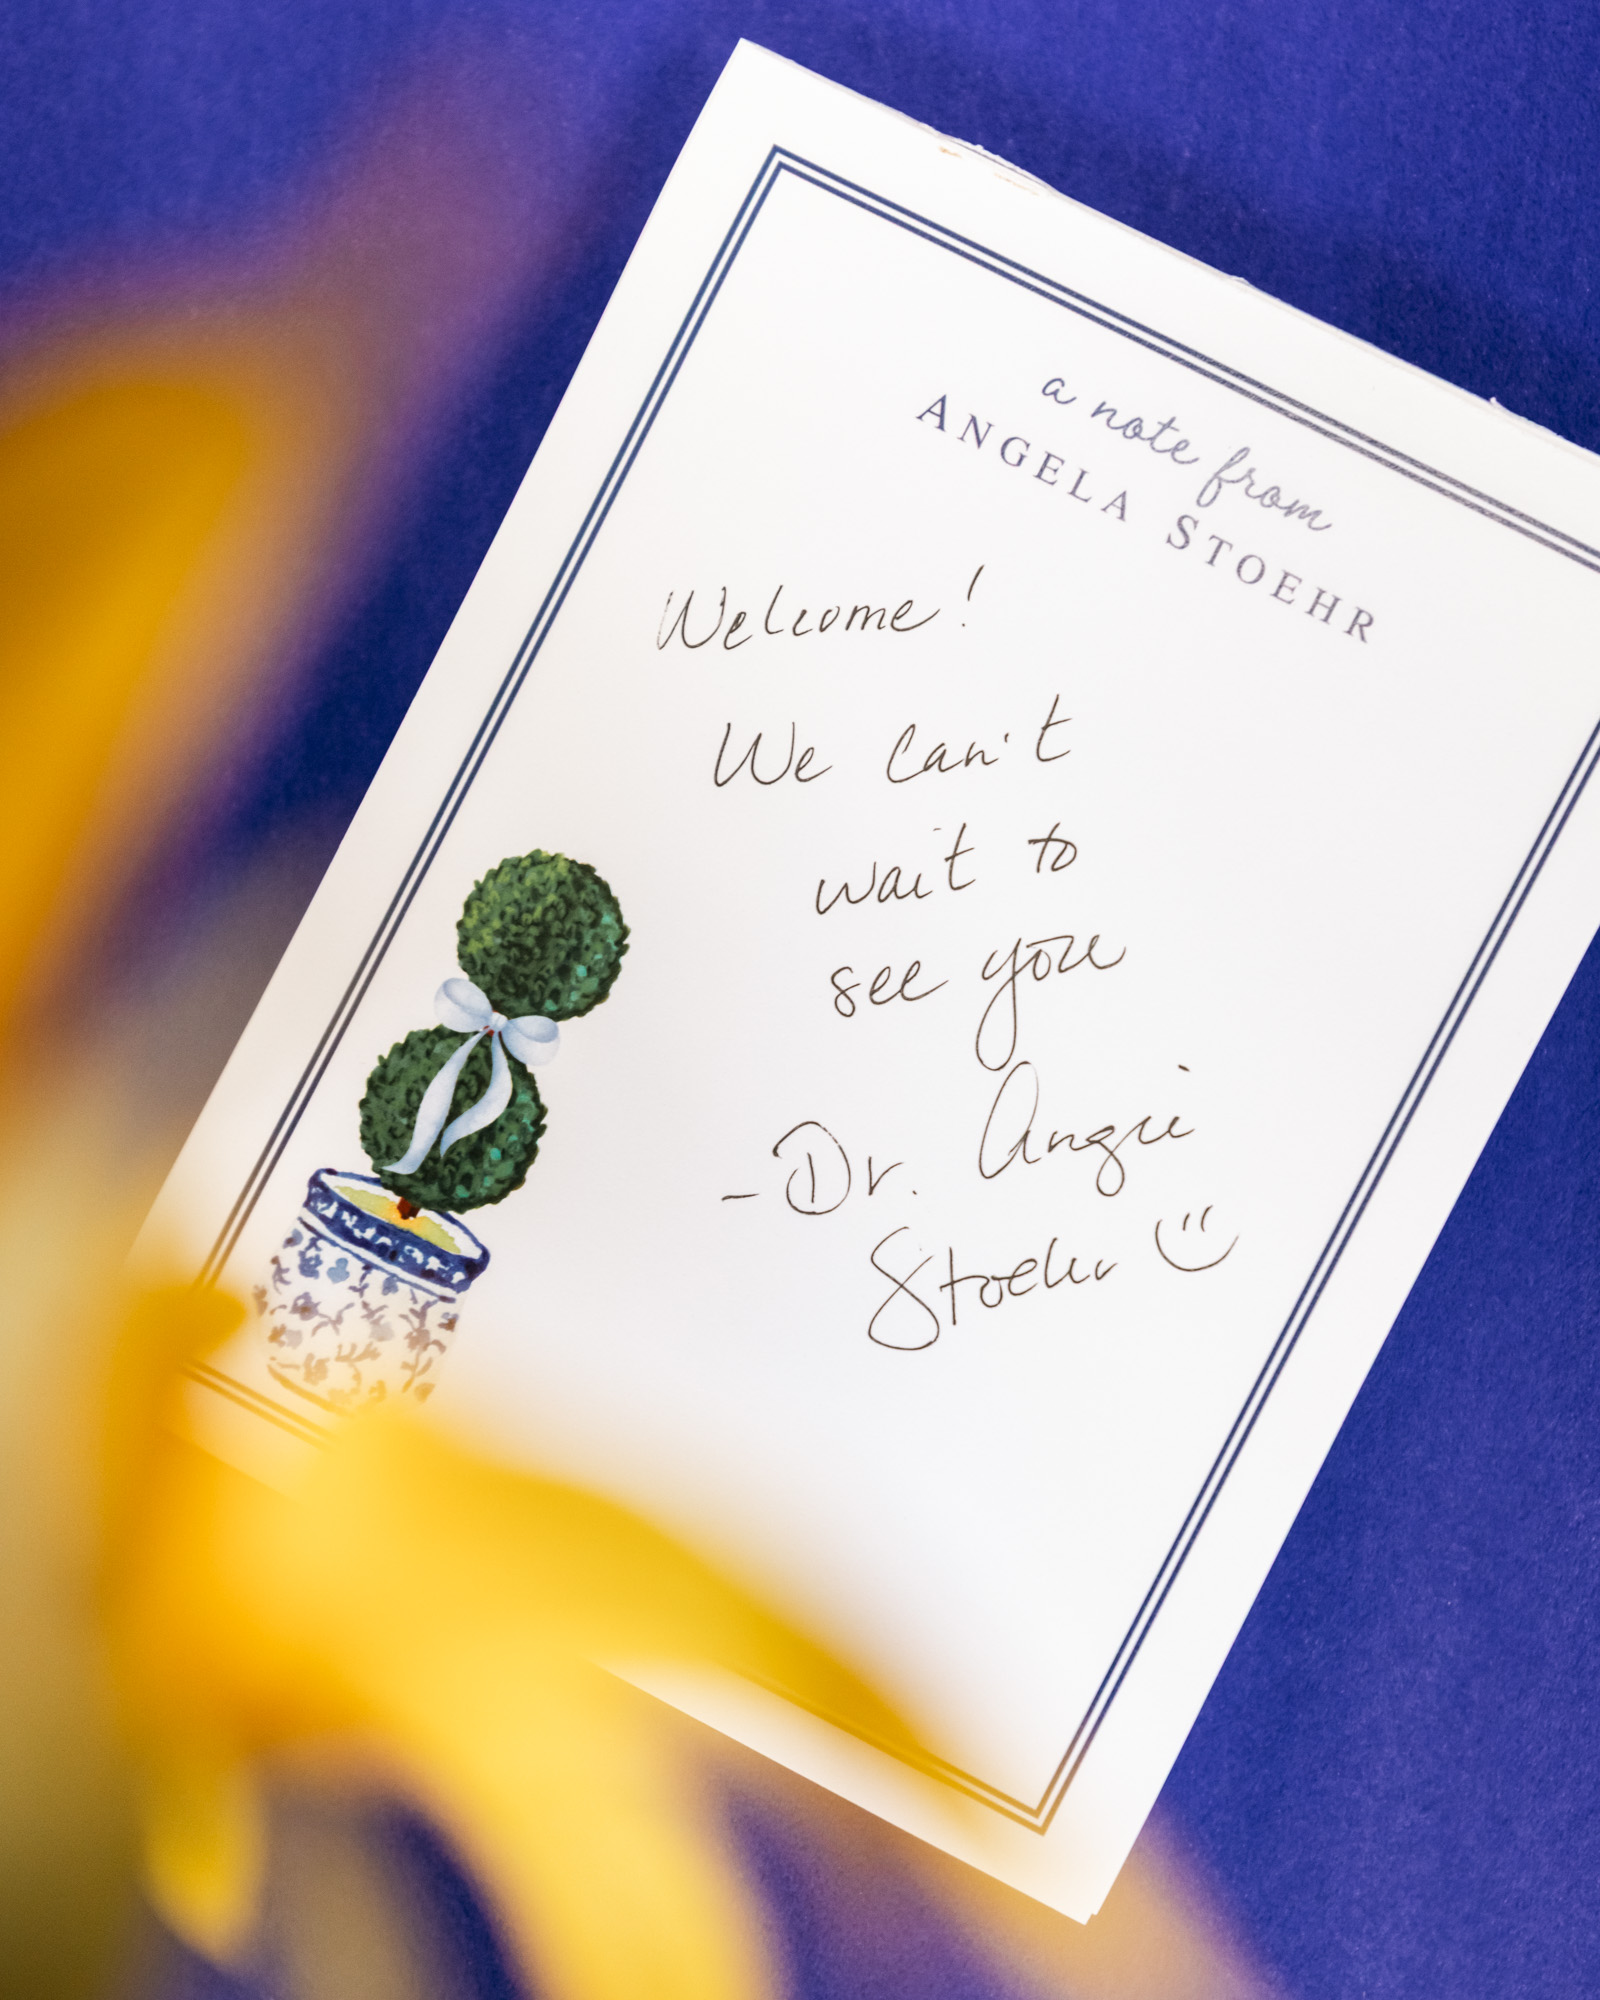 a note from
ANGELA STOEHR
Welcome!
We can't
wait to
see you
- Dr. Angie
Stoehr